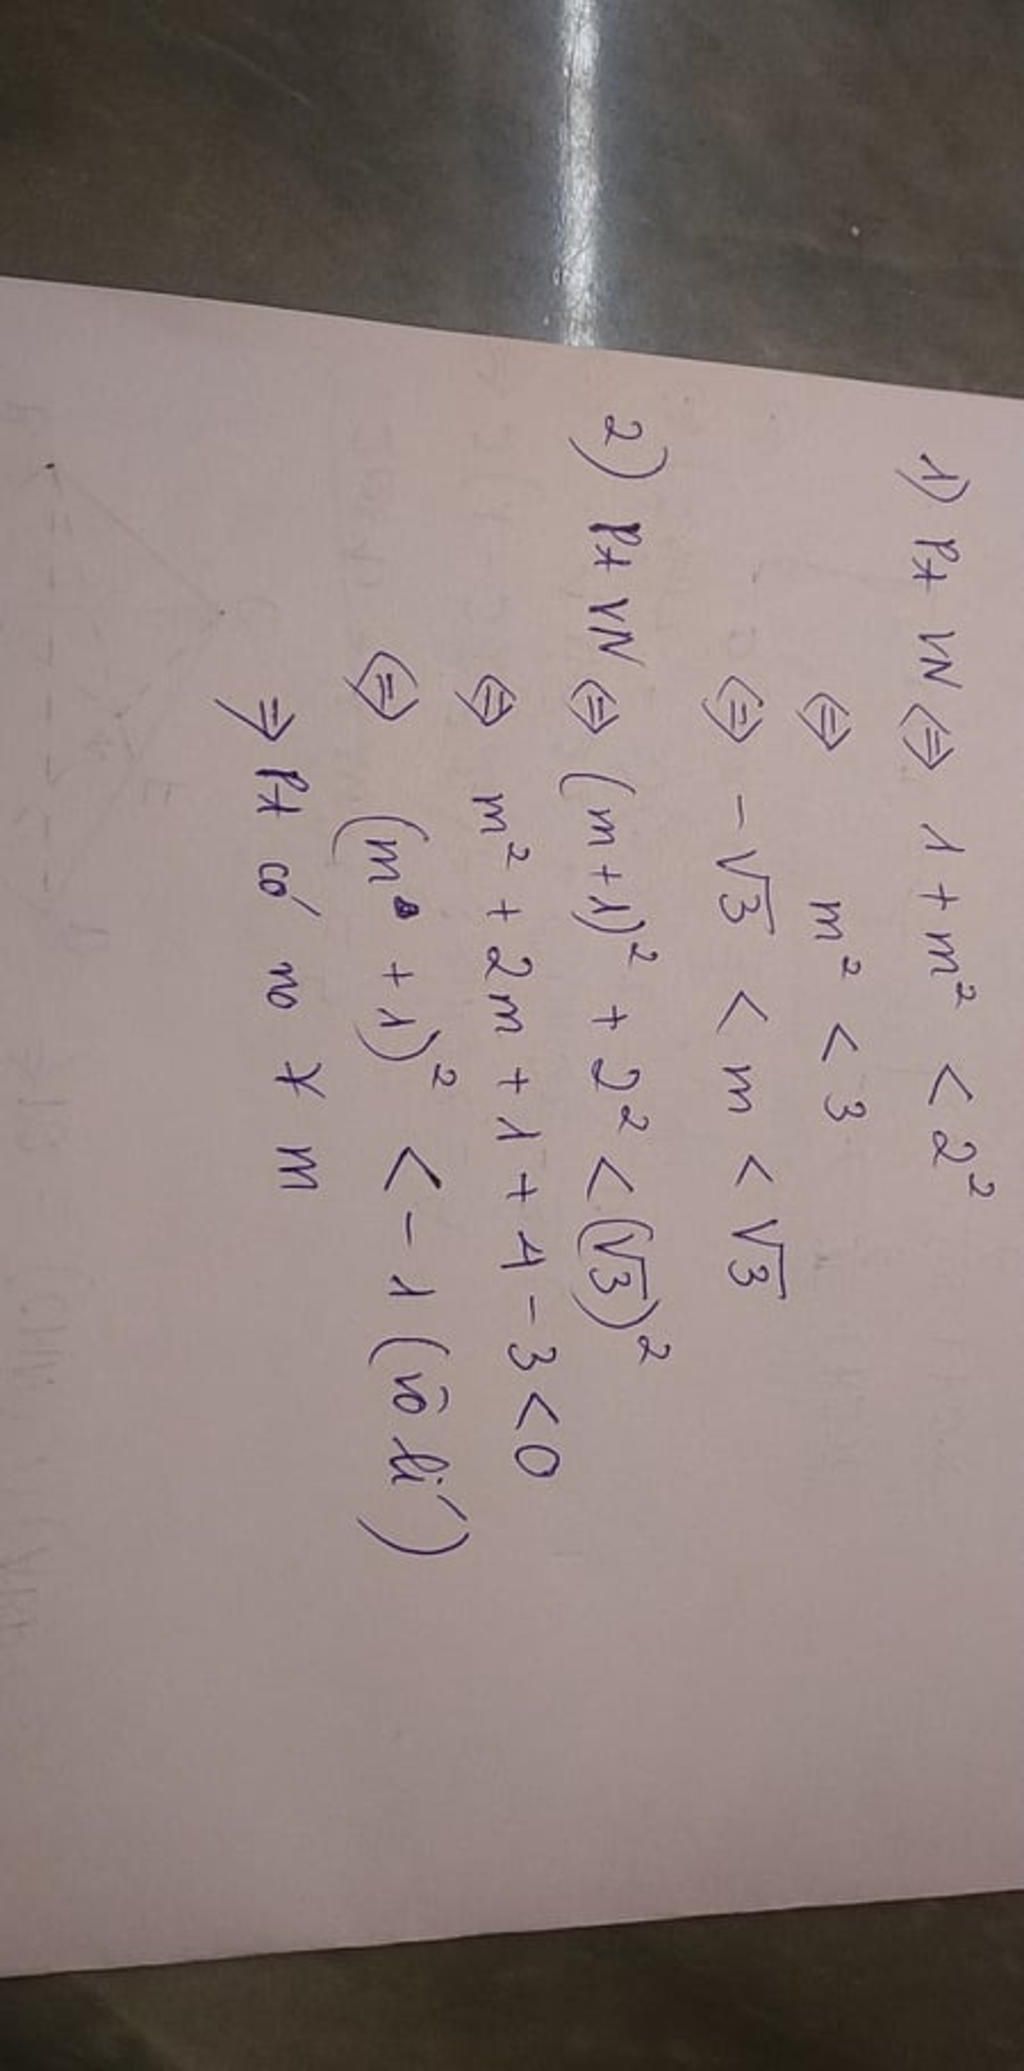 1) Pt VN ⇔ 1 + m² < 2²
⇔ m² < 3
⇔ -√3 < m < √3
2) Pt VN ⇔ (m+1)² + 2² < (√3)²
⇔ m² + 2m + 1 + 4 - 3 < 0
⇔ (m + 1)² < -1 (vô lí)
⇒ Pt có no ∀ m